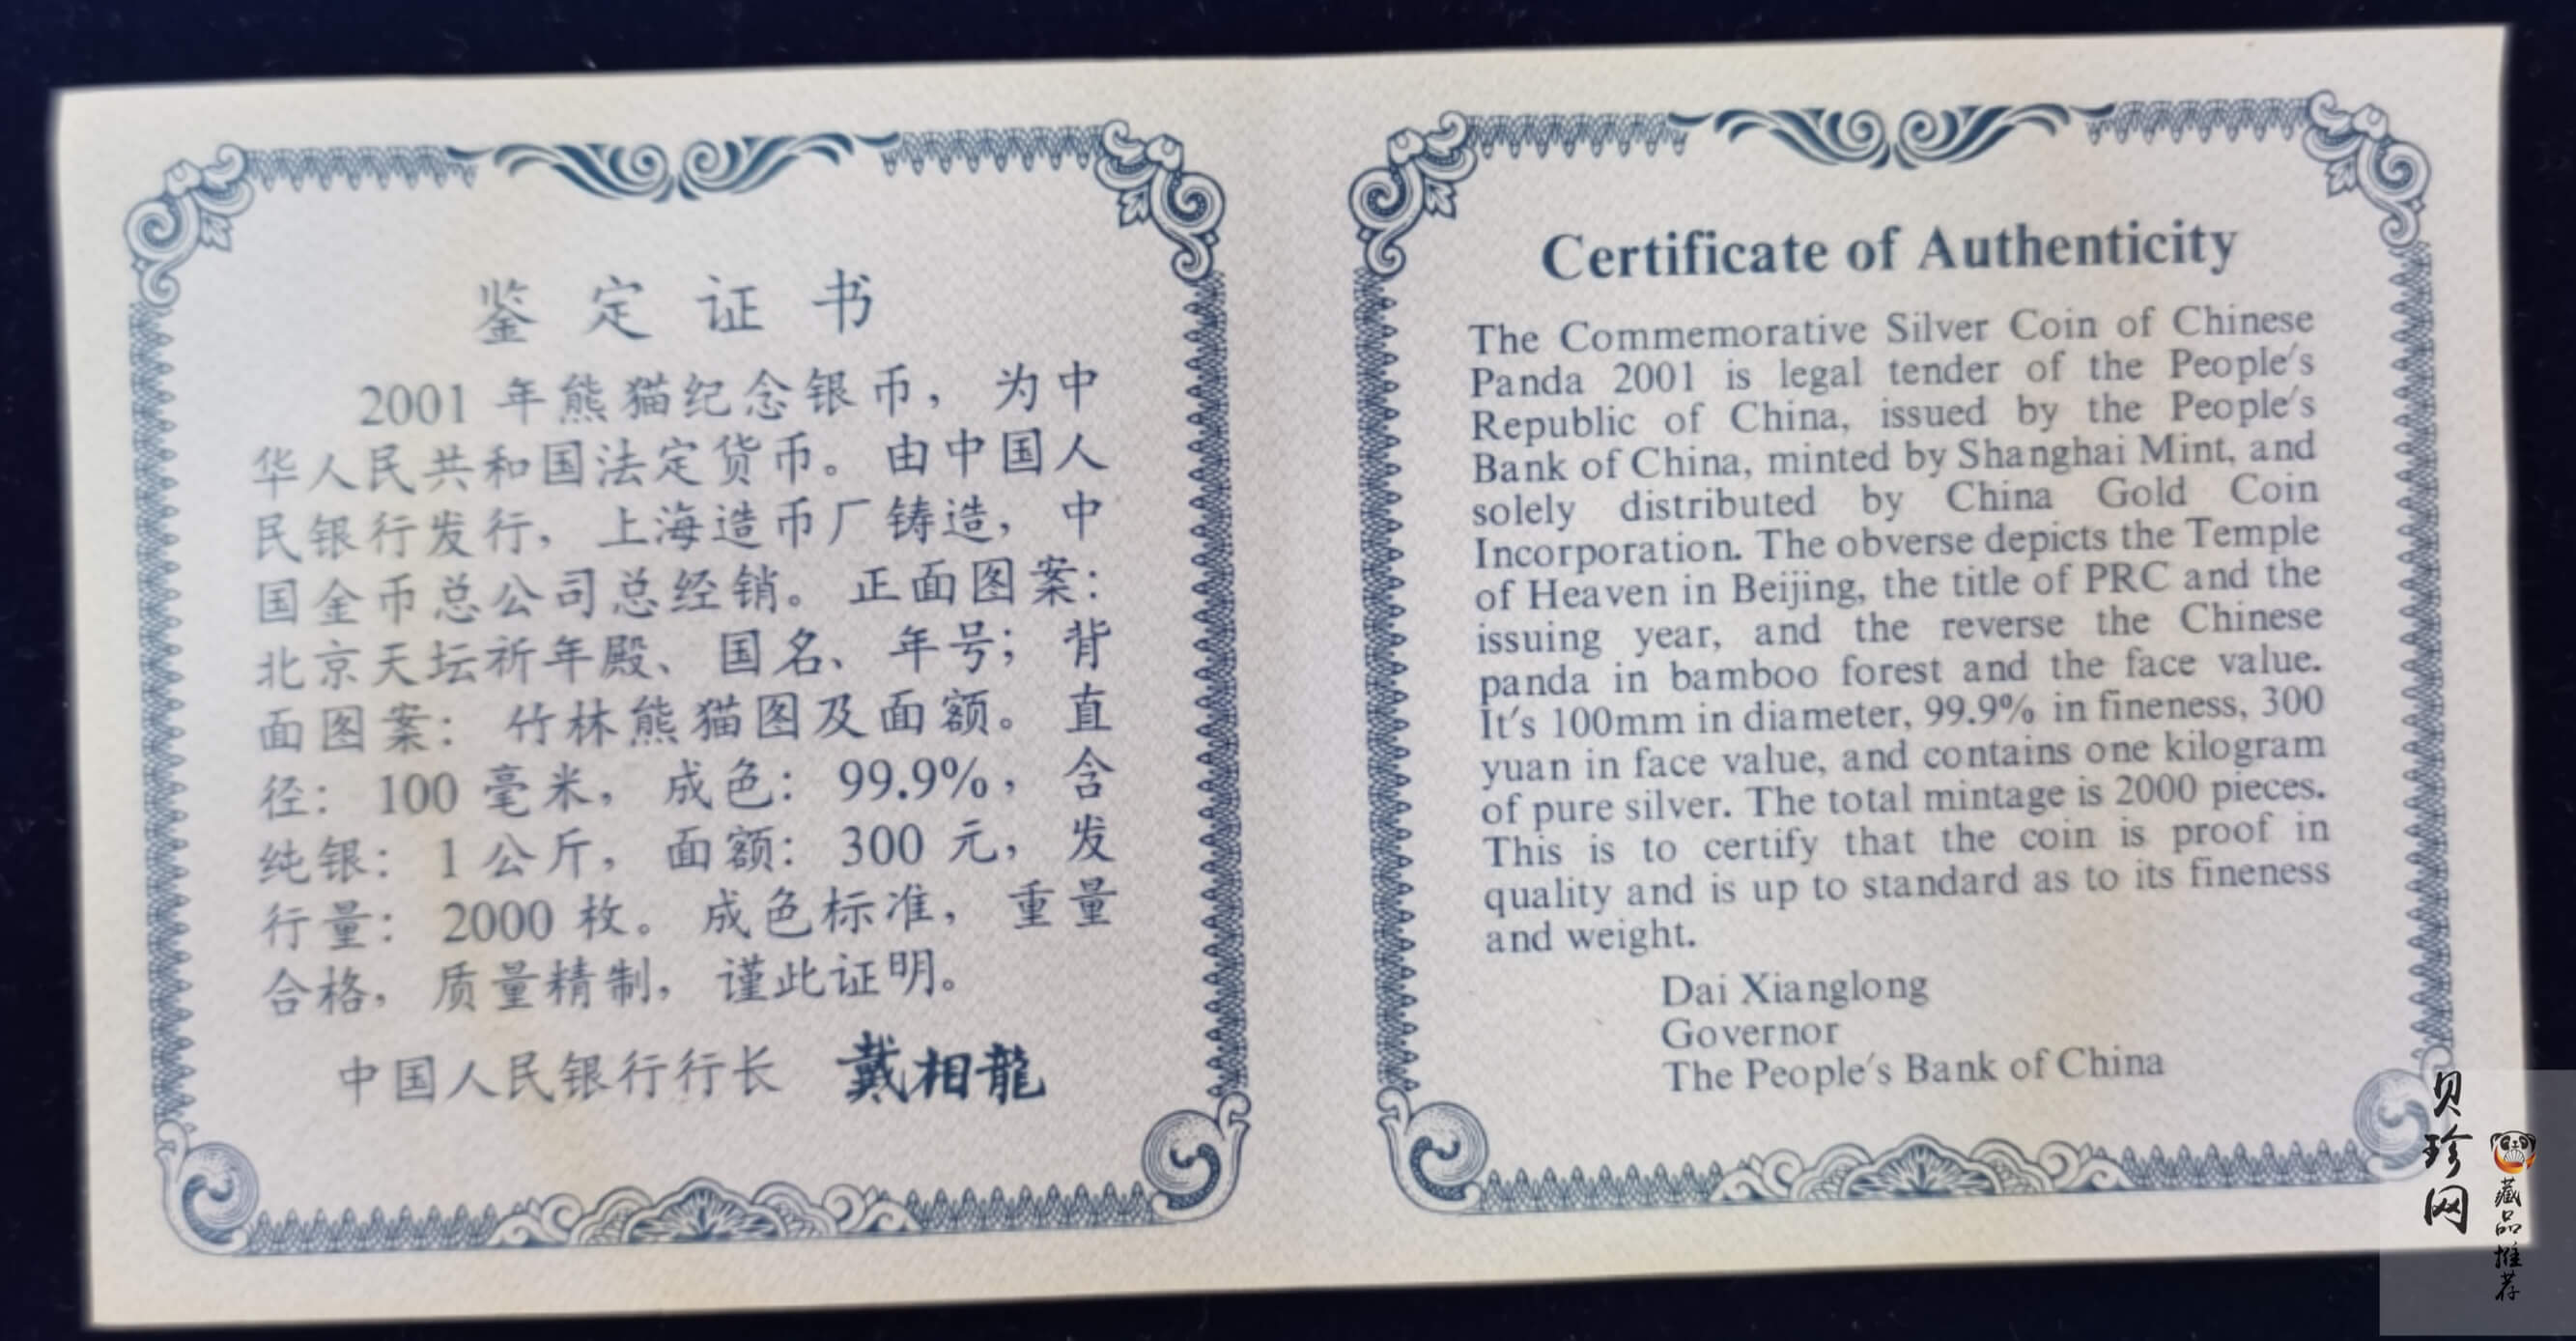 鉴定证书
2001 年熊猫纪念银币，为中
华人民共和国法定货币。由中国人
民银行发行，上海造币厂铸造，中
国金币总公司总经销。正面图案：
北京天坛祈年殿、国名、年号；背
面图案：竹林熊猫图及面额。直
径：100 毫米，成色：99.9%，含
纯银：1 公斤，面额：300 元，发
行量：2000 枚。成色标准，重量
合格，质量精制，谨此证明。
中国人民银行行长 戴相龍
Certificate of Authenticity
The Commemorative Silver Coin of Chinese
Panda 2001 is legal tender of the People's
Republic of China, issued by the People's
Bank of China, minted by Shanghai Mint, and
solely distributed by China Gold Coin
Incorporation. The obverse depicts the Temple
of Heaven in Beijing, the title of PRC and the
issuing year, and the reverse the Chinese
panda in bamboo forest and the face value.
It's 100mm in diameter, 99.9% in fineness, 300
yuan in face value, and contains one kilogram
of pure silver. The total mintage is 2000 pieces.
This is to certify that the coin is proof in
quality and is up to standard as to its fineness
and weight.
Dai Xianglong
Governor
The People's Bank of China
贝珍网
藏品推荐